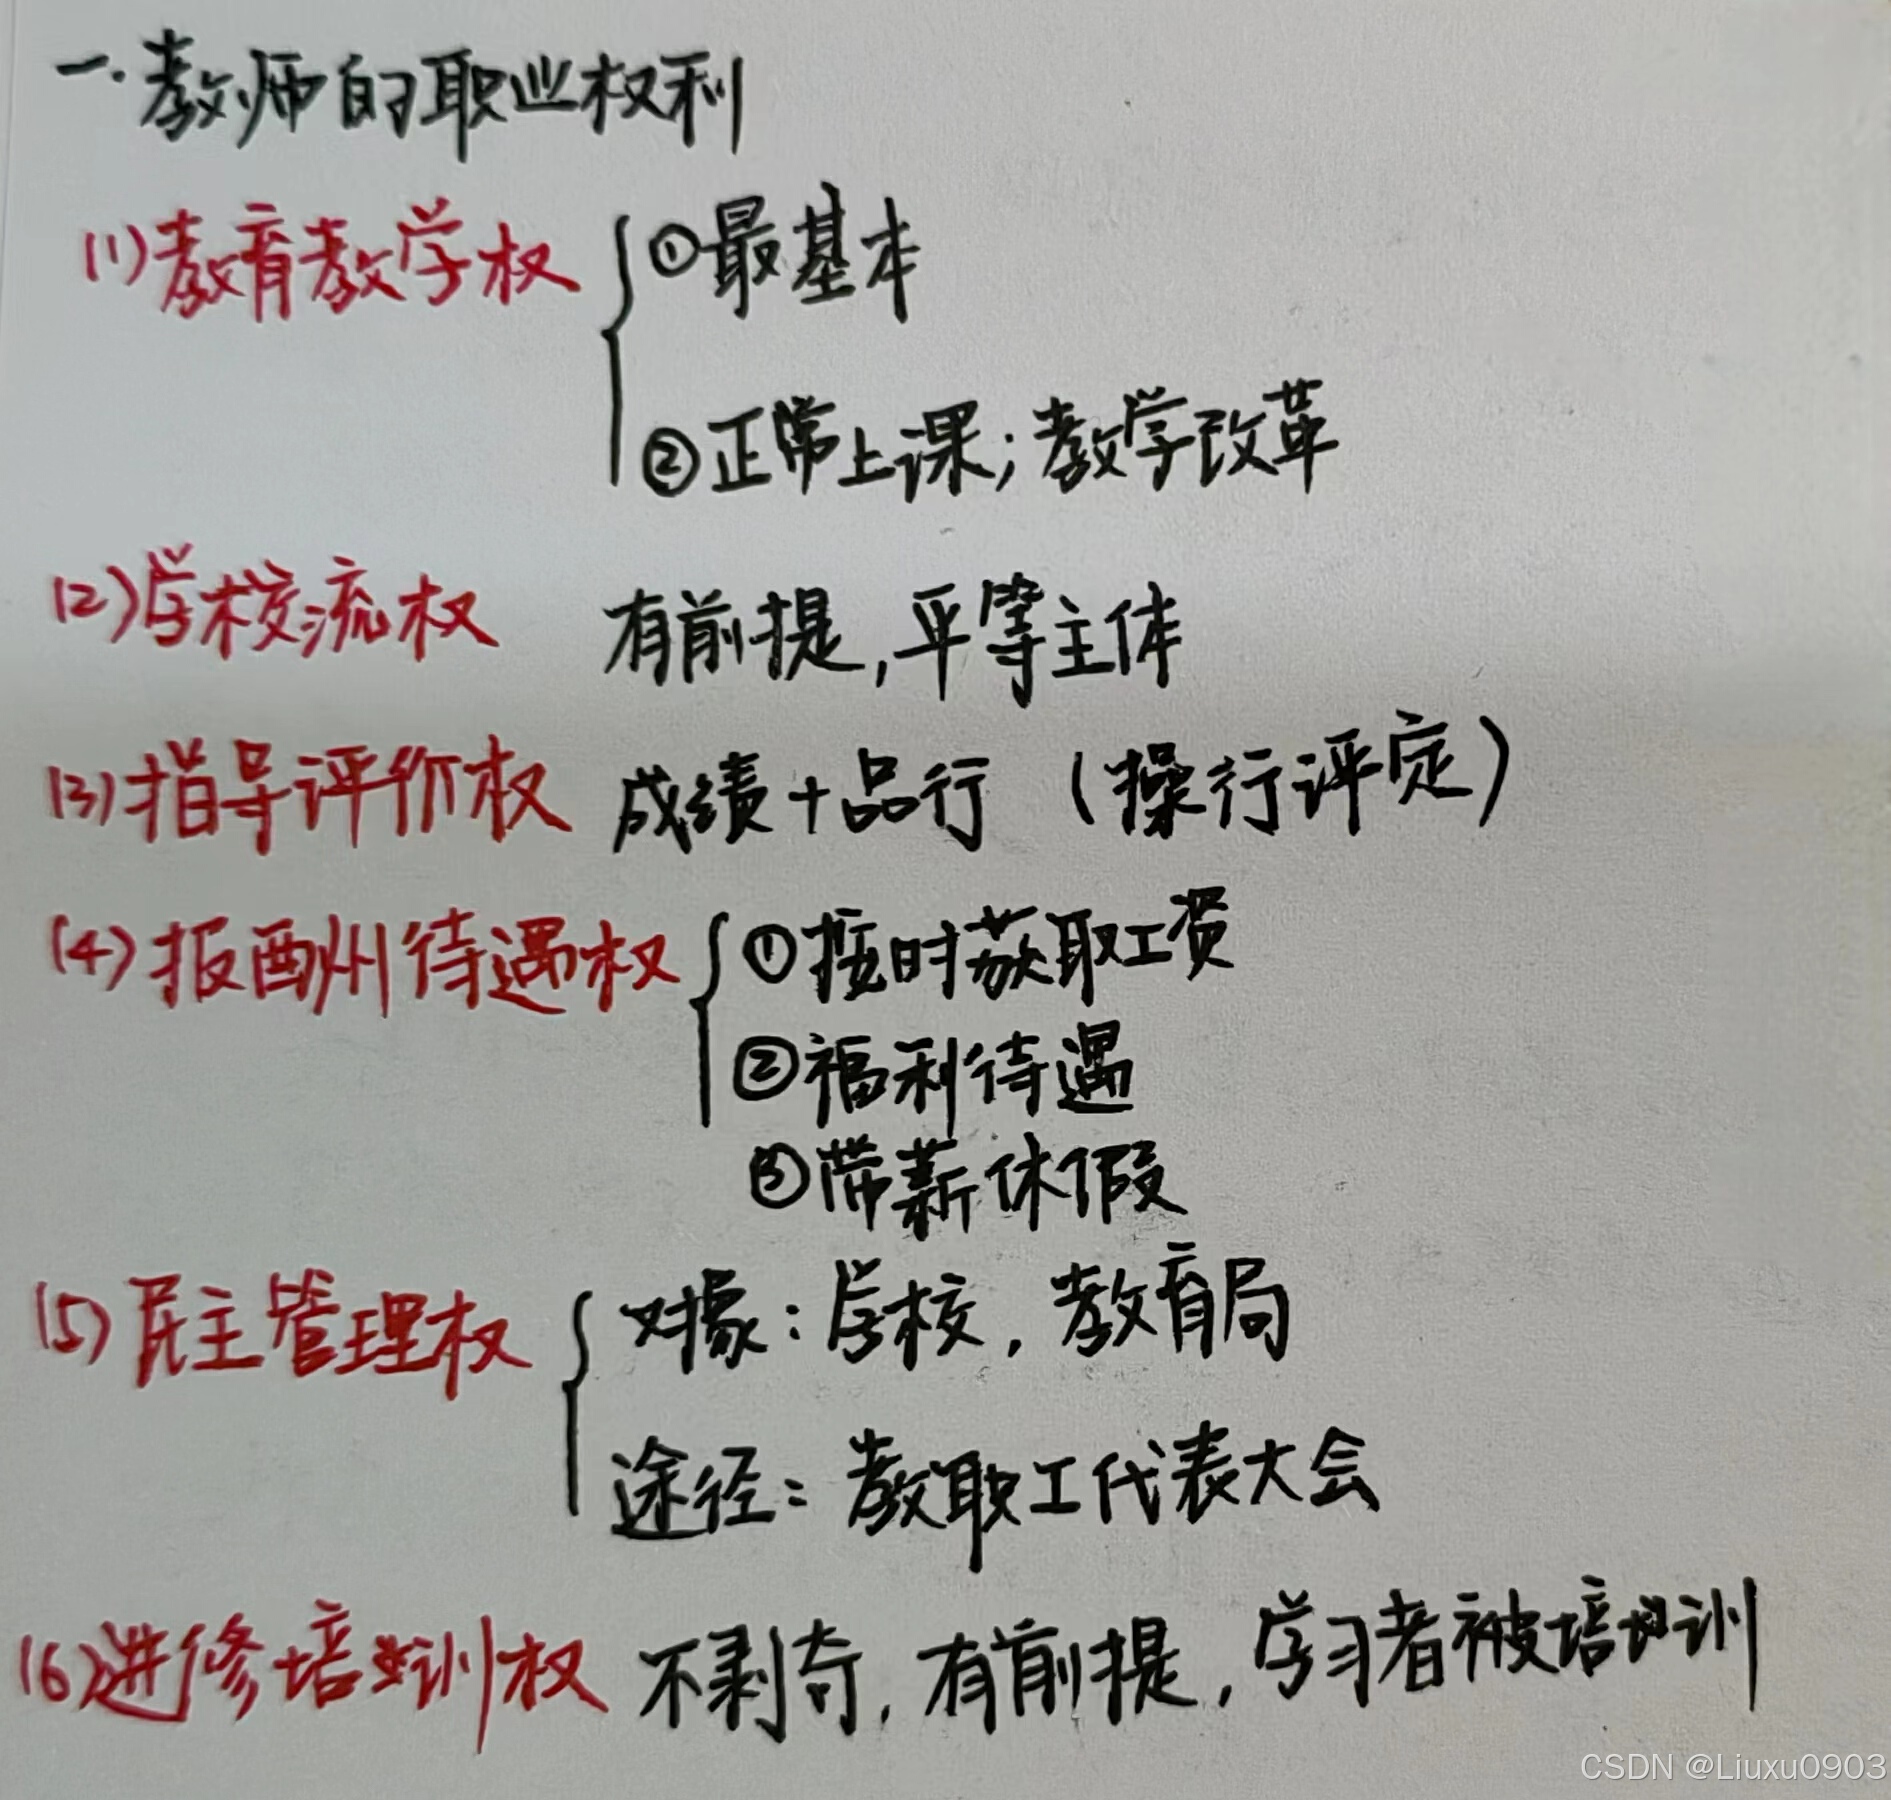 一.教师的职业权利
(1)教育教学权 ①最基本
②正常上课;教学改革
(2)学校流权 有前提,平等主体
(3)指导评价权 成绩+品行(操行评定)
(4)报酬州待遇权 ①按时获取工资
②福利待遇
③带薪休假
(5)民主管理权 对象:学校,教育局
途径:教职工代表大会
(6)进修培训权 不剥夺,有前提,学习者被培训
CSDN @Liuxu0903